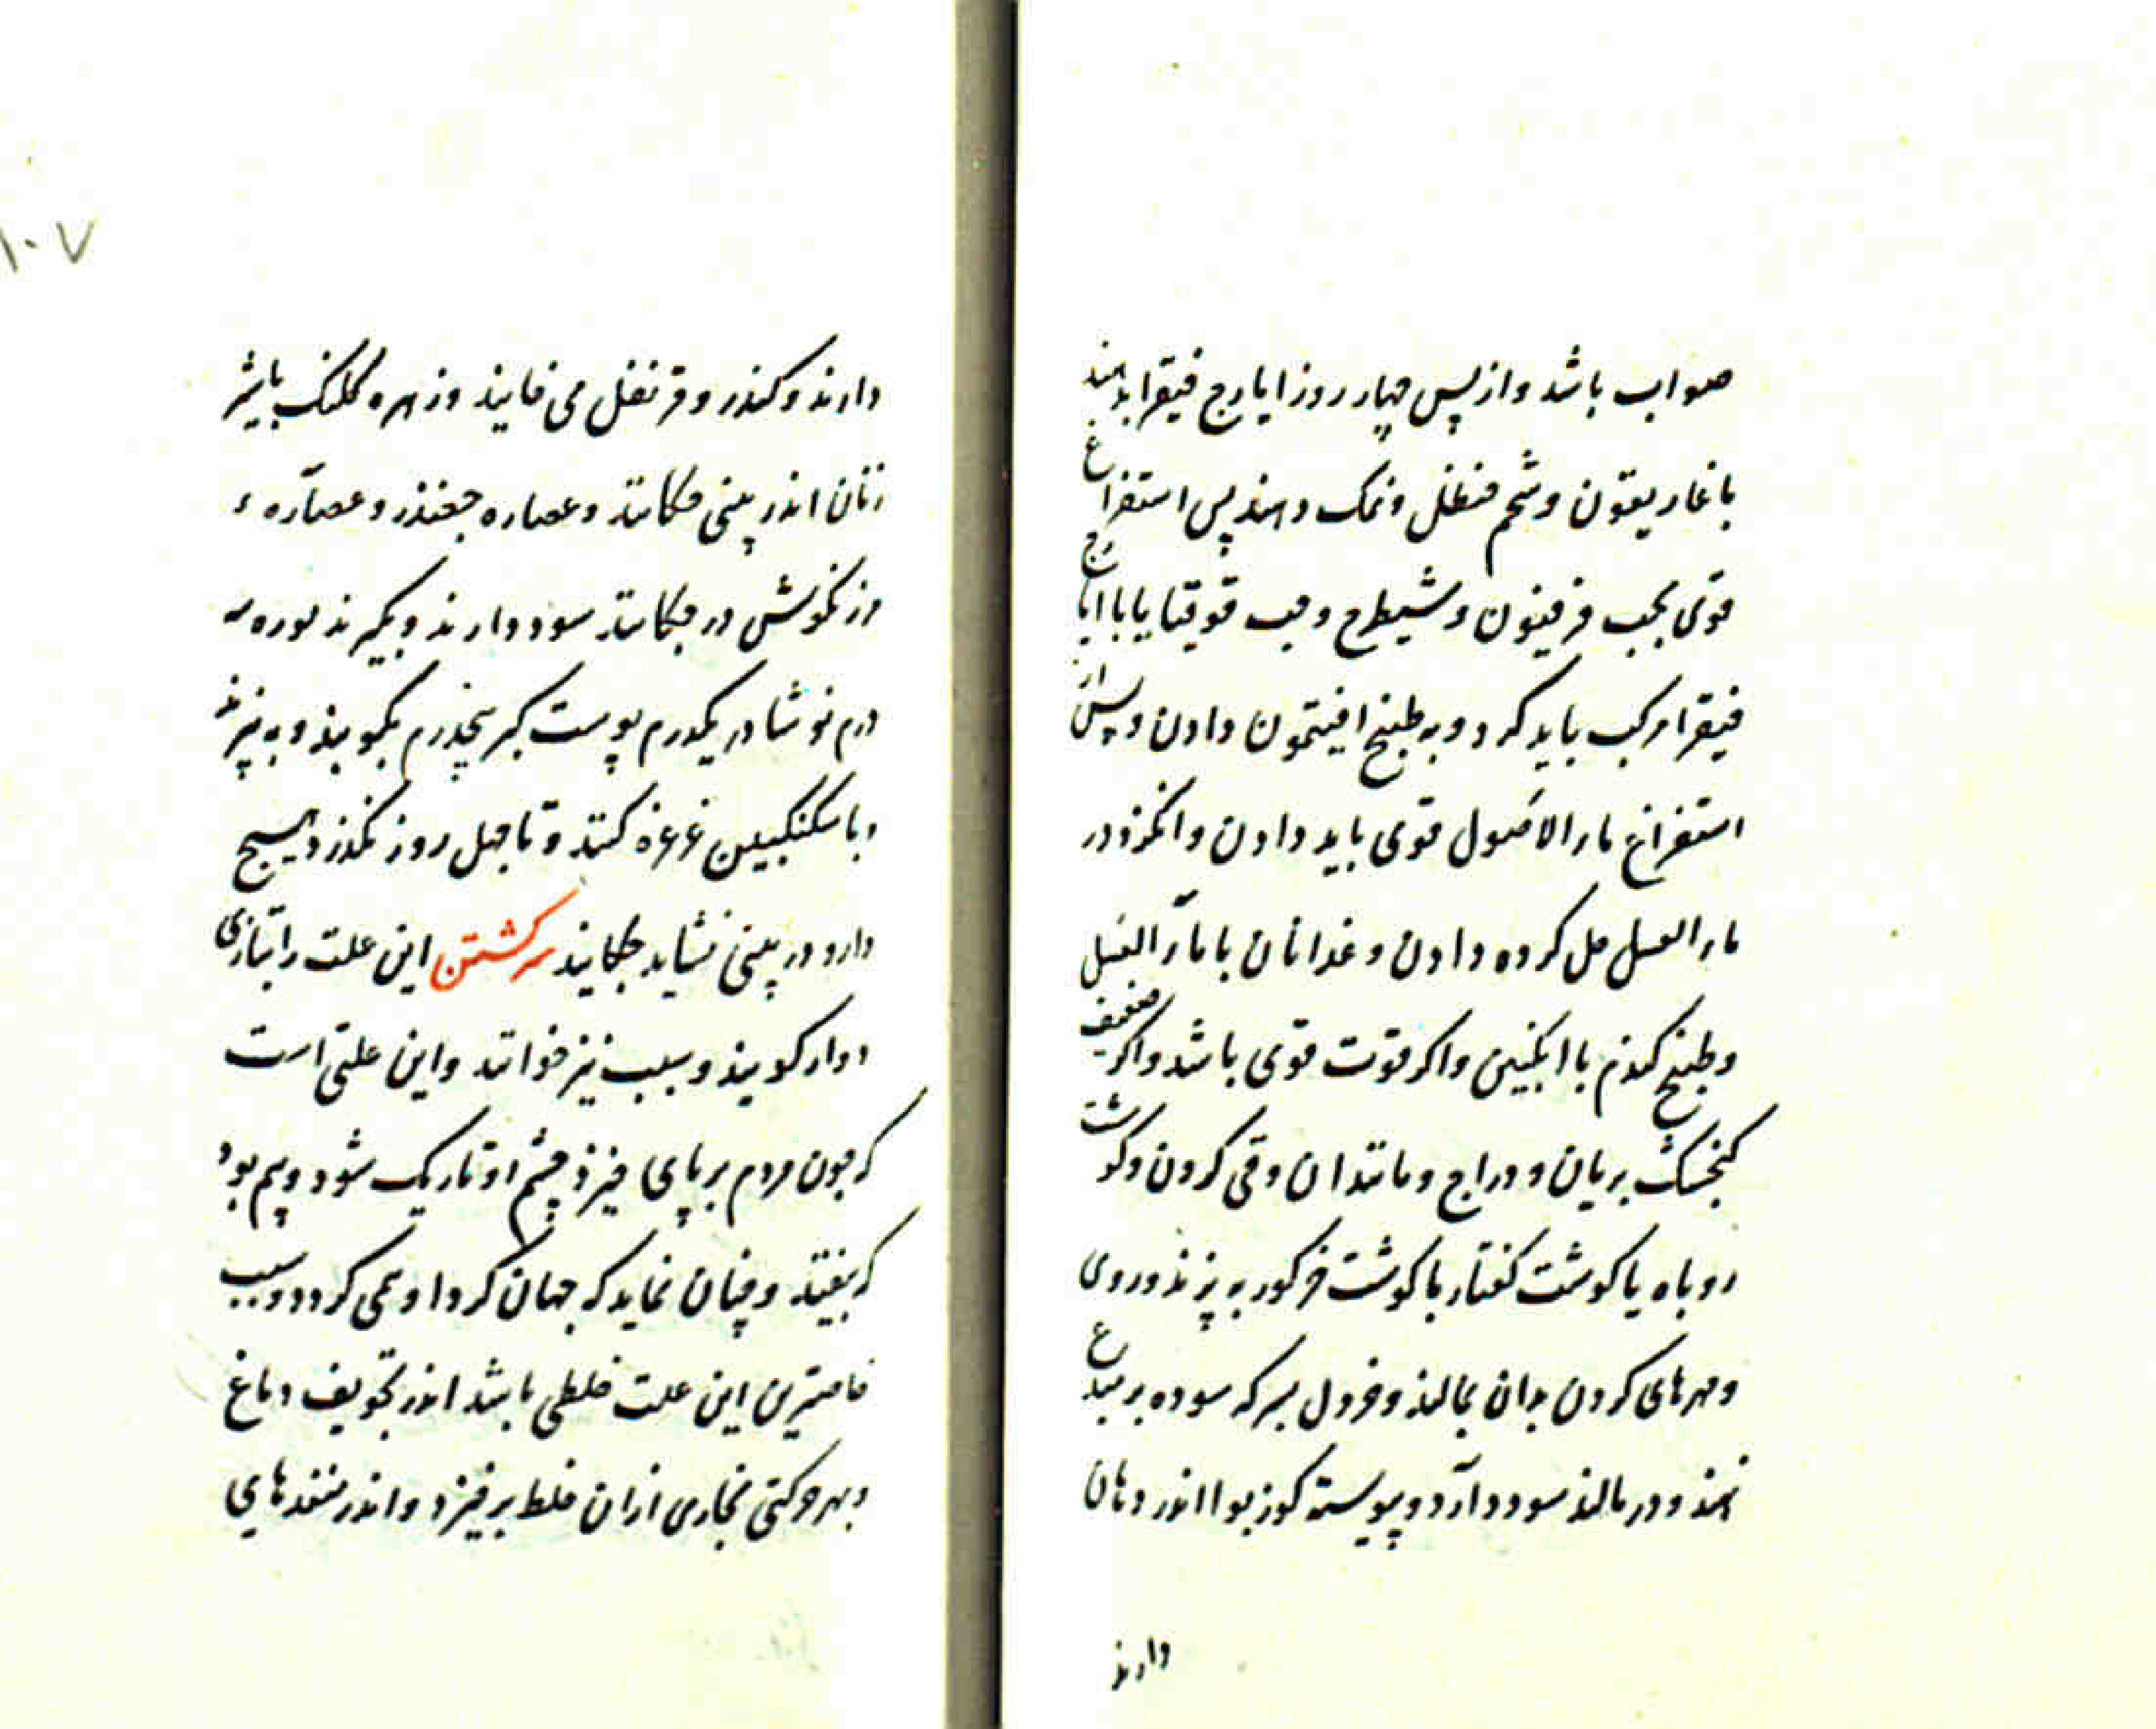 صواب باشد و از پس چهار روز ایارج فیقرا بدهند
با غاریقون و شحم حنظل و نمک دهند پس استفراغ
قوی بحب فرفیون و شیطرج و حب قوقیا یا با ایارج
فیقرا مرکب باید کرد و به طبیخ افیتمون دادن و پس از
استفراغ ماء الاصول قوی باید دادن و انکزد در
ماء العسل حل کرده دادن و غذا نان با ماء العسل
و طبیخ کندم با انکبین و اکر قوت قوی باشد و اکر ضعیف
کنجشک بریان و دراج و مانند ان و قی کردن و کوشت
روباه یا کوشت کفتار یا کوشت خرکور به پزند و روی
و مهرهای کردن بدان بمالند و خردل بسرکه سوده بر صدغ
نهند و در مالند سود دارد و پیوسته کوزبوا اندر دهان
دارند
۱۰۷
دارند و کندر و قرنفل می خایند و زهره کلنک باشیر
زنان اندر بینی چکانند و عصاره چغندر و عصاره ء
مرزنکوش در چکانند سود دارند و بکیرند بوره سه
درم نوشادر یکدرم پوست کبر پنجدرم بکوبند و به پزند
و با سکنکبین غرغره کنند و تا چهل روز نکذرد هیچ
دارو در بینی نشاید چکانید سرکشتن این علت را بتازی
دوار کویند و سبب نیز خوانند و این علتی است
که چون مردم بر پای خیزد چشم او تاریک شود و بیم بود
که بیفتد و چنان نماید که جهان کرد او همی کردد و سبب
خاصترین این علت خلطی باشد اندر تجویف دماغ
و بهر حرکتی بخاری از ان خلط بر خیزد و اندر منفذهای